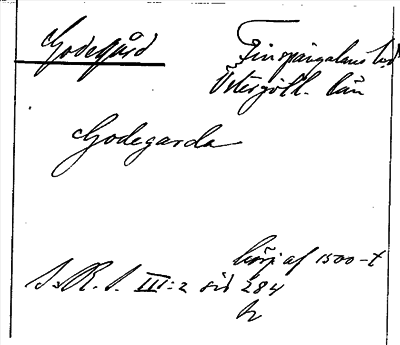 Godegård
Finspångaläns hd
Östergötl. län
Godegarda
börj af 1500-t
S. R. S. III:2 sid 284